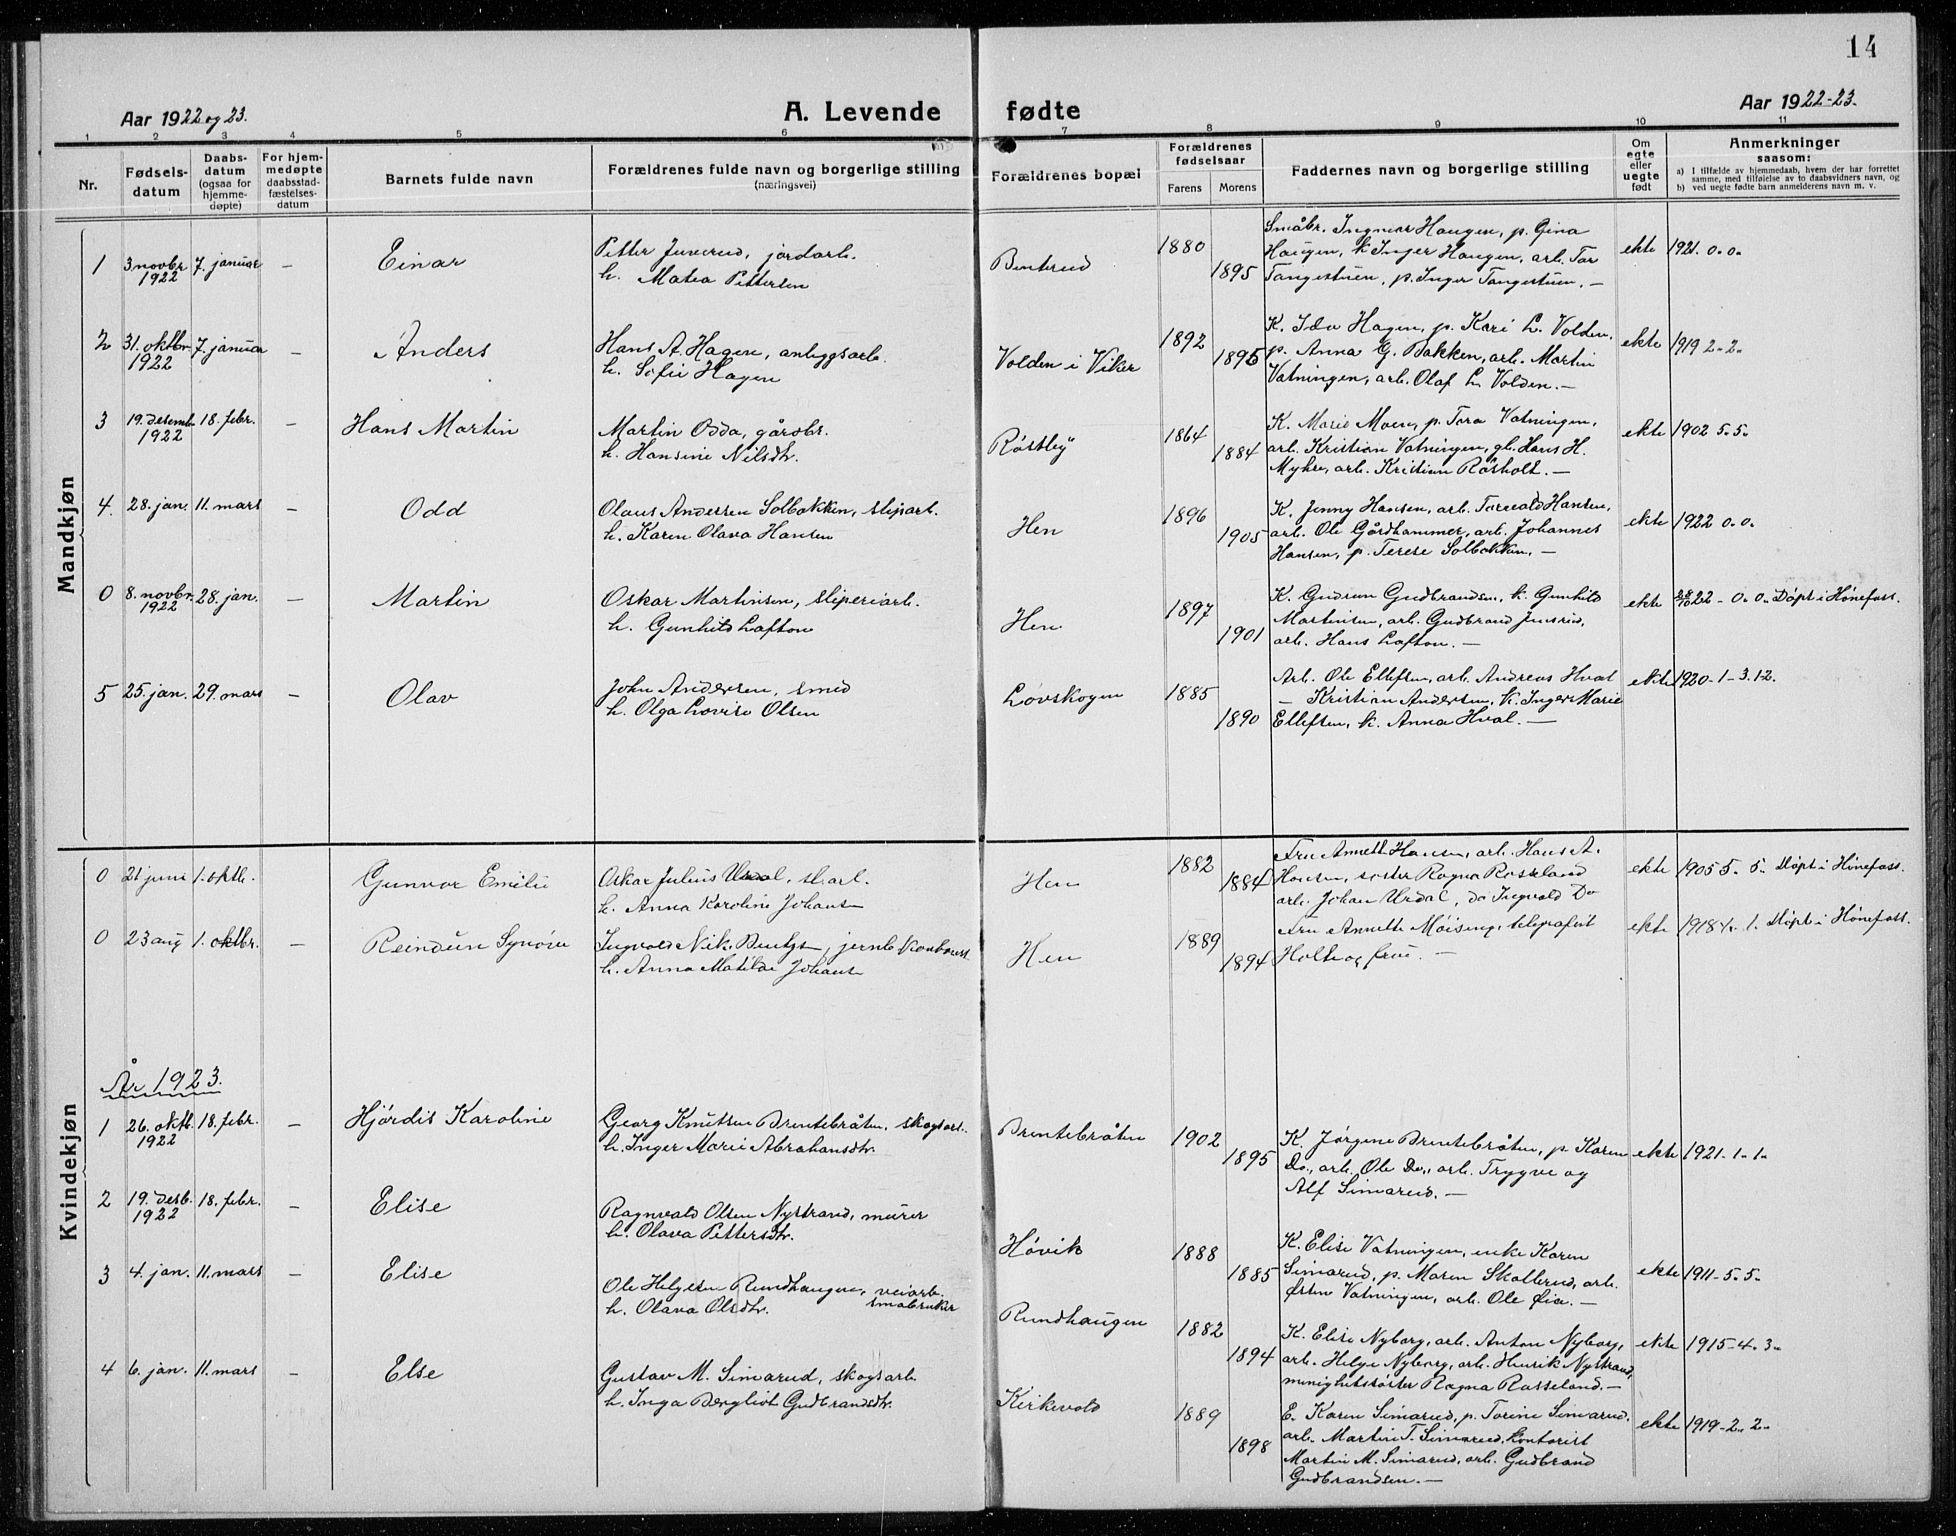 14
Aar 1922 og 23.
A. Levende fødte
Aar 1922-23.
1 2 3 4 5 6 7 8 9 10 11
Nr.
Fødsels-
datum
Daabs-
datum
(ogsaa for
hjemme-
døpte)
For hjem-
medøpte
daabsstad-
fæstelses-
datum
Barnets fulde navn
Forældrenes fulde navn og borgerlige stilling
(næringsvei)
Forældrenes bopæl
Forældrenes
fødselsaar
Farens Morens
Faddernes navn og borgerlige stilling
Om
egte
eller
uegte
født
Anmerkninger
saasom:
a) I tilfælde av hjemmedaab, hvem der har forrettet
samme, med tilføielse av to daabsvidners navn, og
b) ved uegte fødte barn anmelderens navn m. v.
Mandkjøn
1 3 novbr 1922 7. januar — Einar
Petter Juverud, jordarb.
h. Matea Pettersen
Benterud 1880 1895
Småbr. Ingvar Haugen, p. Gina
Haugen, k. Inger Haugen, arb. Tor
Tangestuen, p. Inger Tangestuen. —
ekte 1921. 0. 0.
2 31. oktbr. 1922 7. januar — Anders
Hans A. Hagen, anleggsarb.
h. Sofie Hagen
Volden i Viker 1892 1895
K. Ida Hagen, p. Kari L. Volden,
p. Anna G. Bakken, arb. Martin
Vatningen, arb. Olaf L. Volden. —
ekte 1919 2. 2.
3 19. desemb. 1922 18. febr. Hans Martin
Martin Odda, gårdbr.
h. Hansine Nilsdtr.
Røstby 1864 1884
K. Marie Moen, p. Tora Vatningen,
arb. Kristian Vatningen, gb. Hans H.
Myhre, arb. Kristian Røsholt. —
ekte 1902 5. 5.
4. 28. jan. 11. mars — Odd
Olaus Andersen Solbakken, sliparb.
h. Karen Olava Hansen
Hen 1896 1905
K. Jenny Hansen, arb. Torvald Hansen,
arb. Ole Gårdhammer, arb. Johannes
Hansen, p. Terese Solbakken. —
ekte 1922 0. 0.
0 8. novbr. 1922 28. jan. — Martin
Oskar Martinsen, sliperiarb.
h. Gunhild Lafton
Hen 1897 1901
K. Gudrun Gudbrandsen, k. Gunhild
Martinsen, arb. Gudbrand Jensrud,
arb. Hans Lafton. —
ekte 28/10 22 - 0. 0. Døpt i Hønefoss.
5 25. jan. 29. mars — Olav
John Andersen, smed
h. Olga Lovise Olsen
Løvskogen 1885 1890
Arb. Ole Ellefsen, arb. Andreas Hval
— Kristian Andersen, K. Inger Marie
Ellefsen, k. Anna Hval. —
ekte 1920 - 1 - 3.12.
Kvindekjøn
0 21 juni 1. oktb. Gunvor Emilie
Oskar Julius Urdal, sl.arb.
h. Anna Karoline Johans
Hen 1882 1884
Fru Annette Hansen, arb. Hans A.
Hansen, søster Ragna Rosseland
arb. Johan Urdal, do Ingvald Do
ekte 1905 5. 5. Døpt i Hønefoss.
0 23 aug 1. oktbr. — Reindun Synøve
Ingvald Nik. Bentzs, jernb.
h. Anna Matilde Johans
Hen 1889 1894
Fru Annette Moising, telegrafist
Holte og frue. —
ekte 1918 4. 1. Døpt i Hønefoss.
År 1923.
1 26. oktb. 1922 18. febr. — Hjørdis Karoline
Georg Knutsen Brentebråten, skogsarb.
h. Inger Marie Abrahamsdtr.
Brentebråten 1902 1895
K. Jørgine Brentebråten, p. Karen
Do., arb. Ole Do., arb. Trygve og
Alf Simarud. —
ekte 1921 - 1. 1.
2 19. desb. 1922 18. febr. — Elise
Ragnvald Olsen Nystrand, murer
h. Olava Pettersdtr.
Høvik 1888 1885
K. Elise Vatningen, enke Karen
Simarud, p. Maren Skollerud, arb.
Østen Vatningen, arb. Ole Øia. —
ekte 1911 - 5. 5.
3 4. jan. 11. mars — Elise
Ole Helgesen Rundhaugen, veiarb.
småbruker
h. Olava Olsdtr.
Rundhaugen 1882 1894
K. Elise Nyborg, arb. Anton Nyborg,
arb. Helge Nyborg, arb. Henrik Nystrand,
menighetssøster Ragna Rosseland. —
ekte 1915 - 4. 3.
4 6. jan. 11. mars — Else
Gustav M. Simarud, skogsarb.
h. Inga Bergliot Gudbrandsdtr.
Kirkevold 1889 1898
E. Karen Simarud, p. Torine Simarud.
arb. Martin T. Simarud, kontorist
Martin M. Simarud, arb. Gudbrand
Gudbrandsen. —
ekte 1919 - 2. 2.